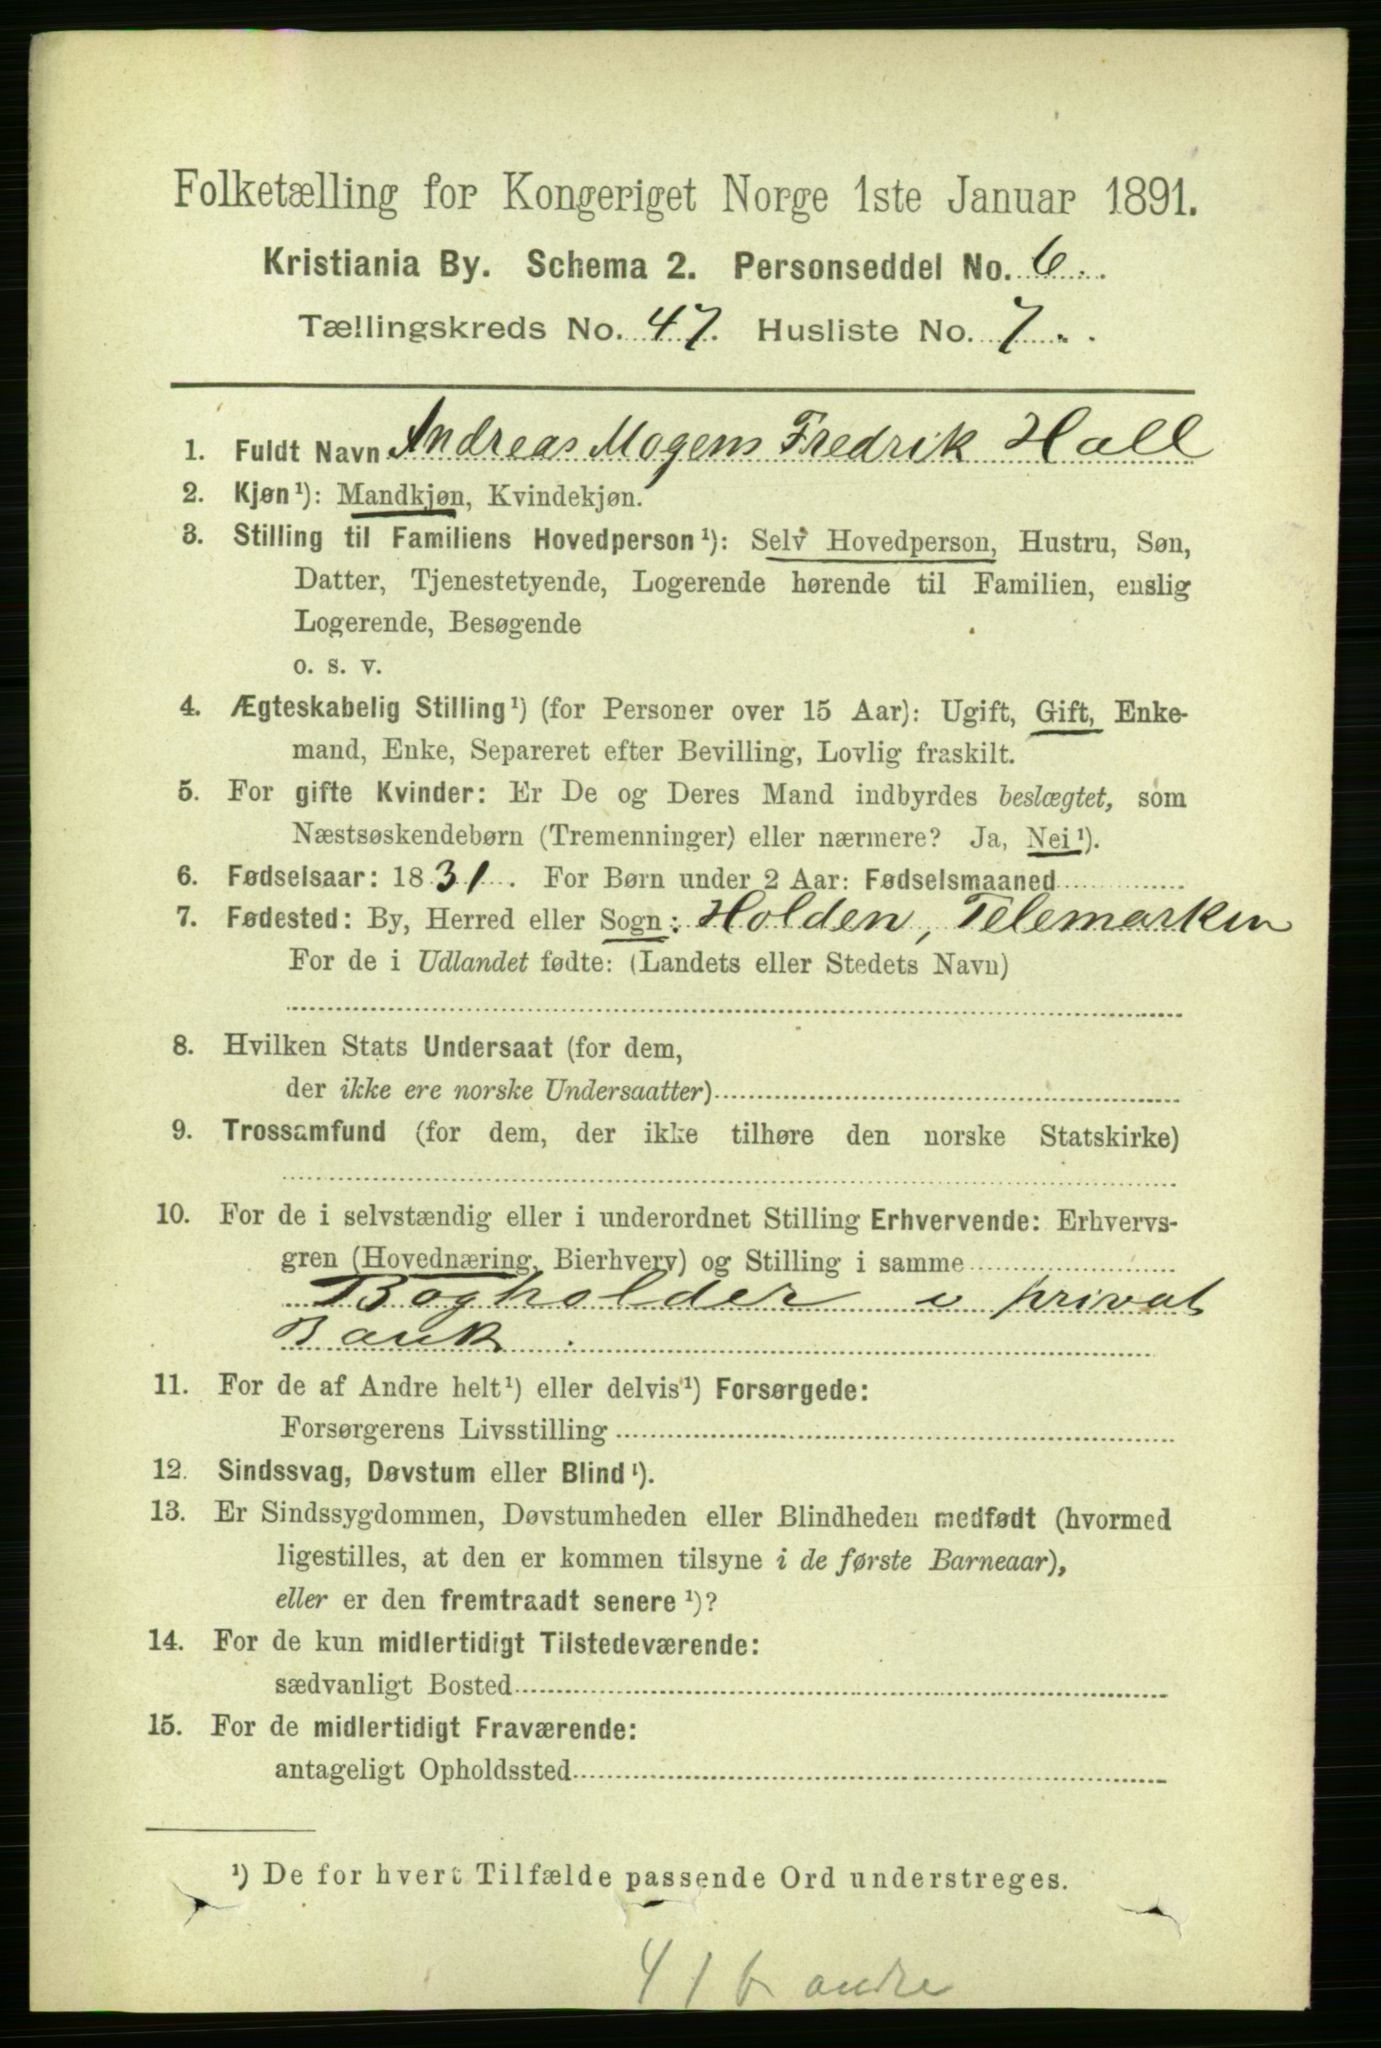 Folketælling for Kongeriget Norge 1ste Januar 1891.
Kristiania By. Schema 2. Personseddel No. 6.
Tællingskreds No. 47. Husliste No. 7.
1. Fuldt Navn Andreas Mogens Fredrik Hall
2. Kjøn¹): Mandkjøn, Kvindekjøn.
3. Stilling til Familiens Hovedperson¹): Selv Hovedperson, Hustru, Søn,
Datter, Tjenestetyende, Logerende hørende til Familien, enslig
Logerende, Besøgende
o. s. v.
4. Ægteskabelig Stilling¹) (for Personer over 15 Aar): Ugift, Gift, Enke-
mand, Enke, Separeret efter Bevilling, Lovlig fraskilt.
5. For gifte Kvinder: Er De og Deres Mand indbyrdes beslægtet, som
Næstsøskendebørn (Tremenninger) eller nærmere? Ja, Nei¹).
6. Fødselsaar: 1831. For Børn under 2 Aar: Fødselsmaaned
7. Fødested: By, Herred eller Sogn: Holden, Telemarken
For de i Udlandet fødte: (Landets eller Stedets Navn)
8. Hvilken Stats Undersaat (for dem,
der ikke ere norske Undersaatter)
9. Trossamfund (for dem, der ikke tilhøre den norske Statskirke)
10. For de i selvstændig eller i underordnet Stilling Erhvervende: Erhvervs-
gren (Hovednæring, Bierhverv) og Stilling i samme
Bogholder i privat
Bank.
11. For de af Andre helt¹) eller delvis¹) Forsørgede:
Forsørgerens Livsstilling
12. Sindssvag, Døvstum eller Blind¹).
13. Er Sindssygdommen, Døvstumheden eller Blindheden medfødt (hvormed
ligestilles, at den er kommen tilsyne i de første Barneaar),
eller er den fremtraadt senere¹)?
14. For de kun midlertidigt Tilstedeværende:
sædvanligt Bosted
15. For de midlertidigt Fraværende:
antageligt Opholdssted
¹) De for hvert Tilfælde passende Ord understreges.
41 b andre